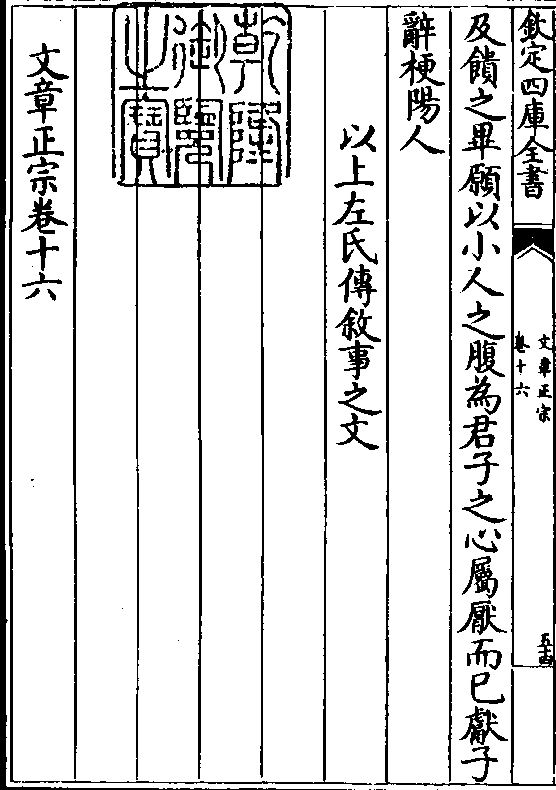 欽定四庫全書
文章正宗
卷十六
五十四
及饋之畢願以小人之腹為君子之心屬厭而已獻子
辭梗陽人
以上左氏傳敘事之文
乾隆
御覽
之寶
文章正宗卷十六